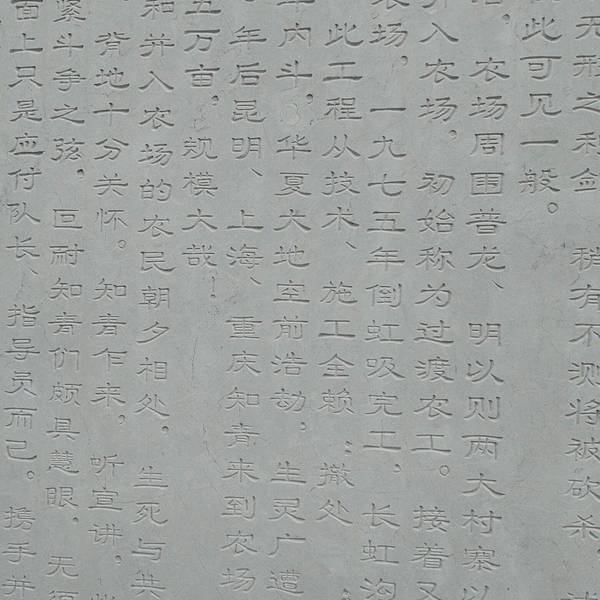 无形之利剑 稍有不测将被砍杀、
此可见一般。
农场周围普龙、明以则两大村寨以
并入农场。初始称为过渡农工。接着又
农场。一九七五年倒虹吸完工,长虹沟
此工程从技术、施工全赖 撤处
年内斗,华夏大地空前浩劫,生灵广遭
年后昆明、上海、重庆知青来到农场
五万亩。规模大哉!
和并入农场的农民朝夕相处,生死与共
背地十分关怀。知青乍来,听宣讲,
紧斗争之弦。叵耐知青们颇具慧眼,无须
面上只是应付队长、指导员而已。携手并